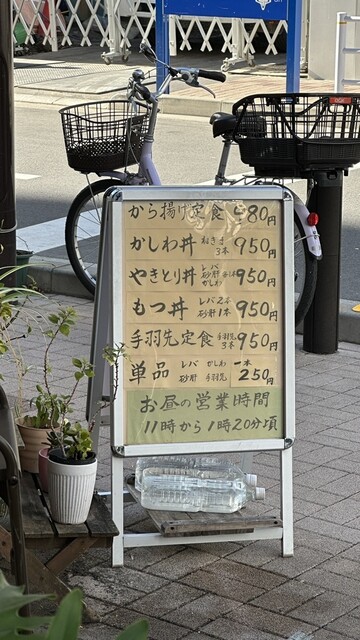 から揚げ定食 980円
かしわ丼 ねぎま 3本 950円
やきとり丼 レバ 砂肝 かしわ 各1本 950円
もつ丼 レバ2本 砂肝1本 950円
手羽先定食 手羽先 3本 950円
単品 レバ かしわ 砂肝 手羽先 一本 250円
お昼の営業時間
11時から1時20分頃